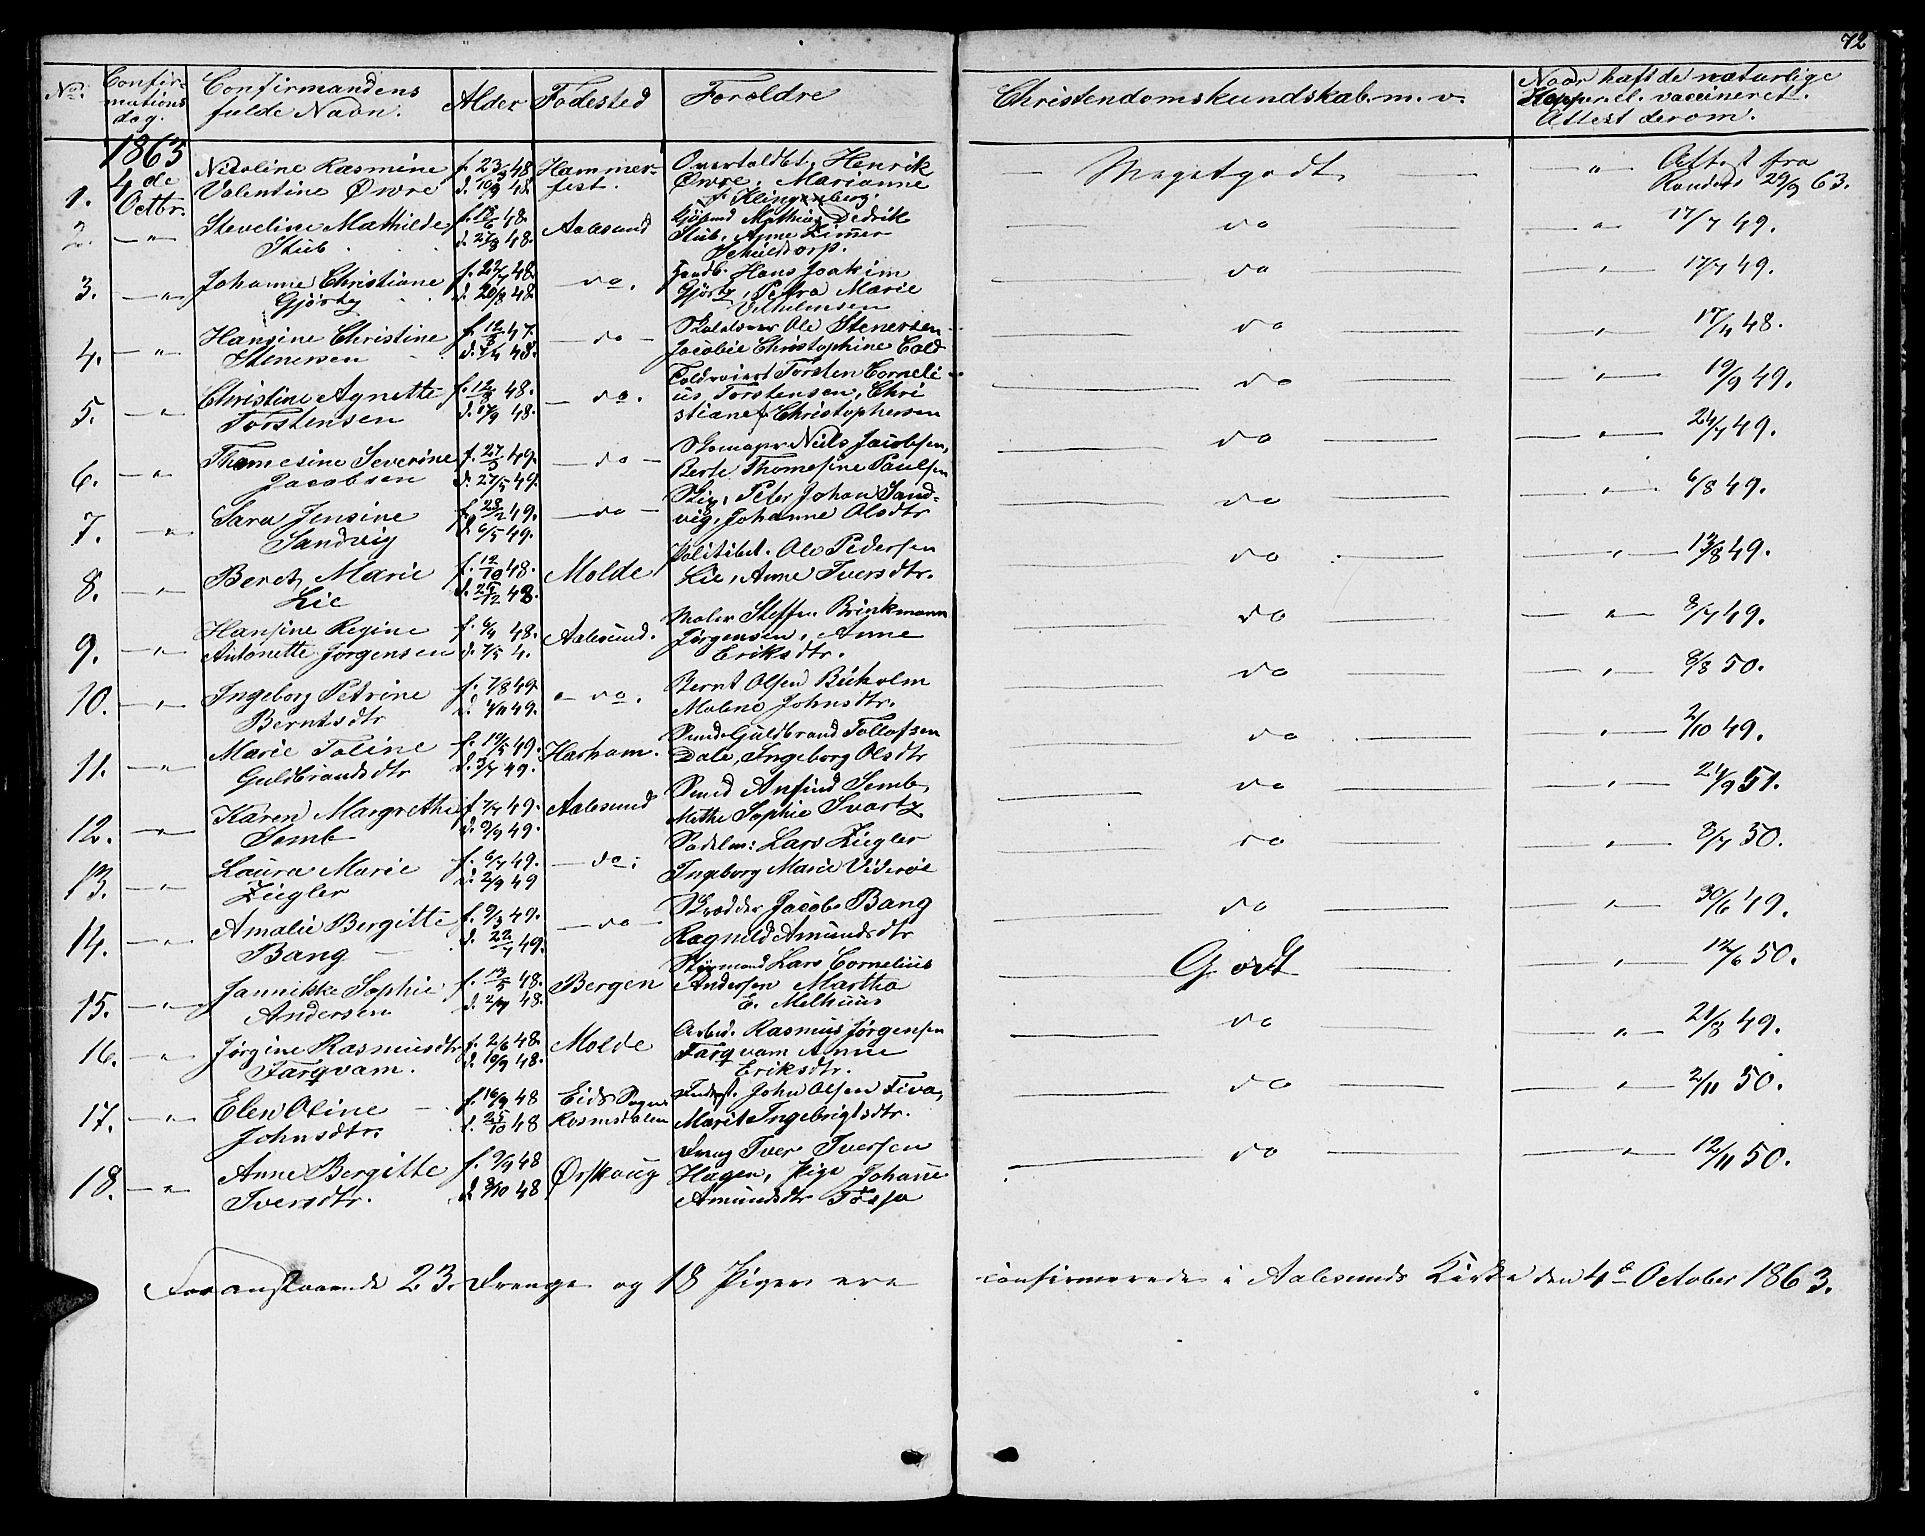 72
No. Confirmations dag. Confirmandens fulde Navn. Alder Fødested Forældre Christendomskundskab. m. v. Naar haft de naturlige Kopper el. vaccineret. Attest derom.
1863
4de Octbr.
1. Nicoline Rasmine Valentine Øwre f. 23/5 48. d. 10/9 48. Hammerfest. Overtoldbt. Henrik Øwre, Marianne f. Klingenberg. Megetgodt " Attest fra Randers 29/9 63.
2. " Steveline Mathilde Stub f. 13/6 48. d. 27/8 48. Aalesund Mathias Dedrik Stub, Anne Zimmer Schieldrop. do " 17/7 49.
3. " Johanne Christiane Gjørtz f. 27/7 48. d. 20/8 48. do. Hans Joakim Gjørtz, Petra Marie Vilhelmsen do " 17/7 49.
4. " Hansine Christine Stenersen f. 12/8 47. d. 48. do Ole Stenersen Jacobie Christophine Cold do " 17/11 48.
5. " Christine Agnette Torstensen f. 12/8 48. d. 17/9 48. do. Torsten Cornelius Torstensen, Christiane f Christophersen do " 19/9 49.
6. " Thomesine Severine Jacobsen f. 27/3 49. d. 27/5 49. do Skomager Niels Jacobsen, Berte Thomesine Paulsen do " 24/7 49.
7. " Sara Jensine Sandvig f. 28/2 49. d. 6/5 49. do Peter Johan Sandvig, Johanne Olsdtr do " 6/8 49.
8. " Beret Marie Lie f. 12/10 48. d. 25/12 48. Molde Politibet. Ole Pedersen Lie, Anne Iversdtr. do " 13/8 49.
9. " Hansine Regine Antonette Jørgensen f. 6/4 48. d. 7/5 4. Aalesund. Maler Steffen Brinkmann Jørgensen, Anne Eriksdtr. do " 8/7 49.
10. " Ingeborg Petrine Berntsdtr f. 7/8 49. d. 4/11 49. do. Bernt Olsen Buholm Malene Johnsdtr. do " 8/8 50.
11. " Marie Toline Guldbrandsdtr f. 19/5 49. d. 49. Harham. Guldbrand Tollofsen Dale, Ingeborg Olsdtr do " 2/10 49.
12. " Karen Margrethe Semb f. 7/7 49. d. 9/9 49. Aalesund Anfind Semb, Mette Sophie Svartz do " 21/9 51.
13. " Laura Marie Ziegler f. 6/7 49. d. 2/9 49 do. Sadelm: Lars Ziegler Ingeborg Marie Viderøe do " 8/7 50.
14. " Amalie Bergitte Bang f. 9/3 49. d. 22/7 49. do Skrædder Jacob Bang Ragnild Amundsdtr do " 30/6 49.
15. " Jannikke Sophie Andersen f. 13/5 48. d. 2/7 48. Bergen Styrmand Lars Cornelius Andersen Martha E. Melhuus Godt " 12/6 50.
16. " Jørgine Rasmusdtr Farqvam. f. 2/6 48. d. 10/9 48. Molde Arbeid. Rasmus Jørgensen Farqvam Anne Eriksdtr. do " 21/8 49.
17. " Elen Oline Johnsdtr. f. 16/9 48 d. 25/10 48 Eids Sogn Romsdalen John Olsen Fiva, Marit Ingebrigtsdtr. do " 2/11 50.
18. " Anne Bergitte Iversdtr. f. 9/9 48 d. 8/10 48 Ørskoug Iver Iversen Hagen, Pige Johane Amundsdtr Tosse do " 12/11 50.
Foranstaaende 23. Drenge og 18 Piger ere confirmerede i Aalesunds Kirke den 4de October 1863.